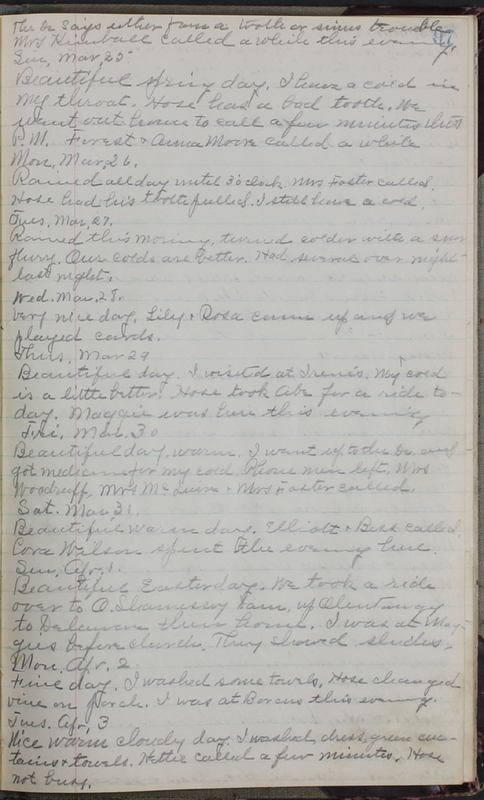 The Dr. says either from a tooth or sinus trouble.
Mrs Kimball called a while this evening.
Sun, Mar, 25.
Beautiful spring day. I have a cold in
my throat. Hose has a bad tooth. We
went out home to call a few minutes this
P.M. Forest & Anna Moore called a while
Mon, Mar 26.
Rained all day until 3 o'clock. Mrs Foster called.
Hose had his tooth pulled. I still have a cold.
Tues, Mar, 27.
Rained this morning, turned colder with a snow
flurry. Our colds are better. Had several over night
last night.
Wed. Mar. 28.
Very nice day, Lily & Rosa came up and we
played cards.
Thus, Mar 29
Beautiful day. I visited at Irene's. My cold
is a little better. Hose took Abe for a ride to-
day. Maggie was here this evening
Fri, Mar. 30
Beautiful day, warm. I went up to the Dr. and
got medicine for my cold. Phone men left. Mrs
Woodruff, Mrs McGuire & Mrs Foster called.
Sat. Mar 31.
Beautiful warm day. Elliott & Bess called.
Cora Wilson spent the evening here.
Sun, Apr, 1.
Beautiful Easter day. We took a ride
over to O. Shannessy Dam, up Olentangy
to Delaware then home. I was at Mag-
gies before church. They showed slides.
Mon, Apr, 2.
Fine day. I washed some towels, Hose cleaned
vine on porch. I was at Borcus this evening.
Tues. Apr, 3
Nice warm cloudy day. I washed dress, green cur-
tains & towels. Nettie called a few minutes. Hose
not busy.